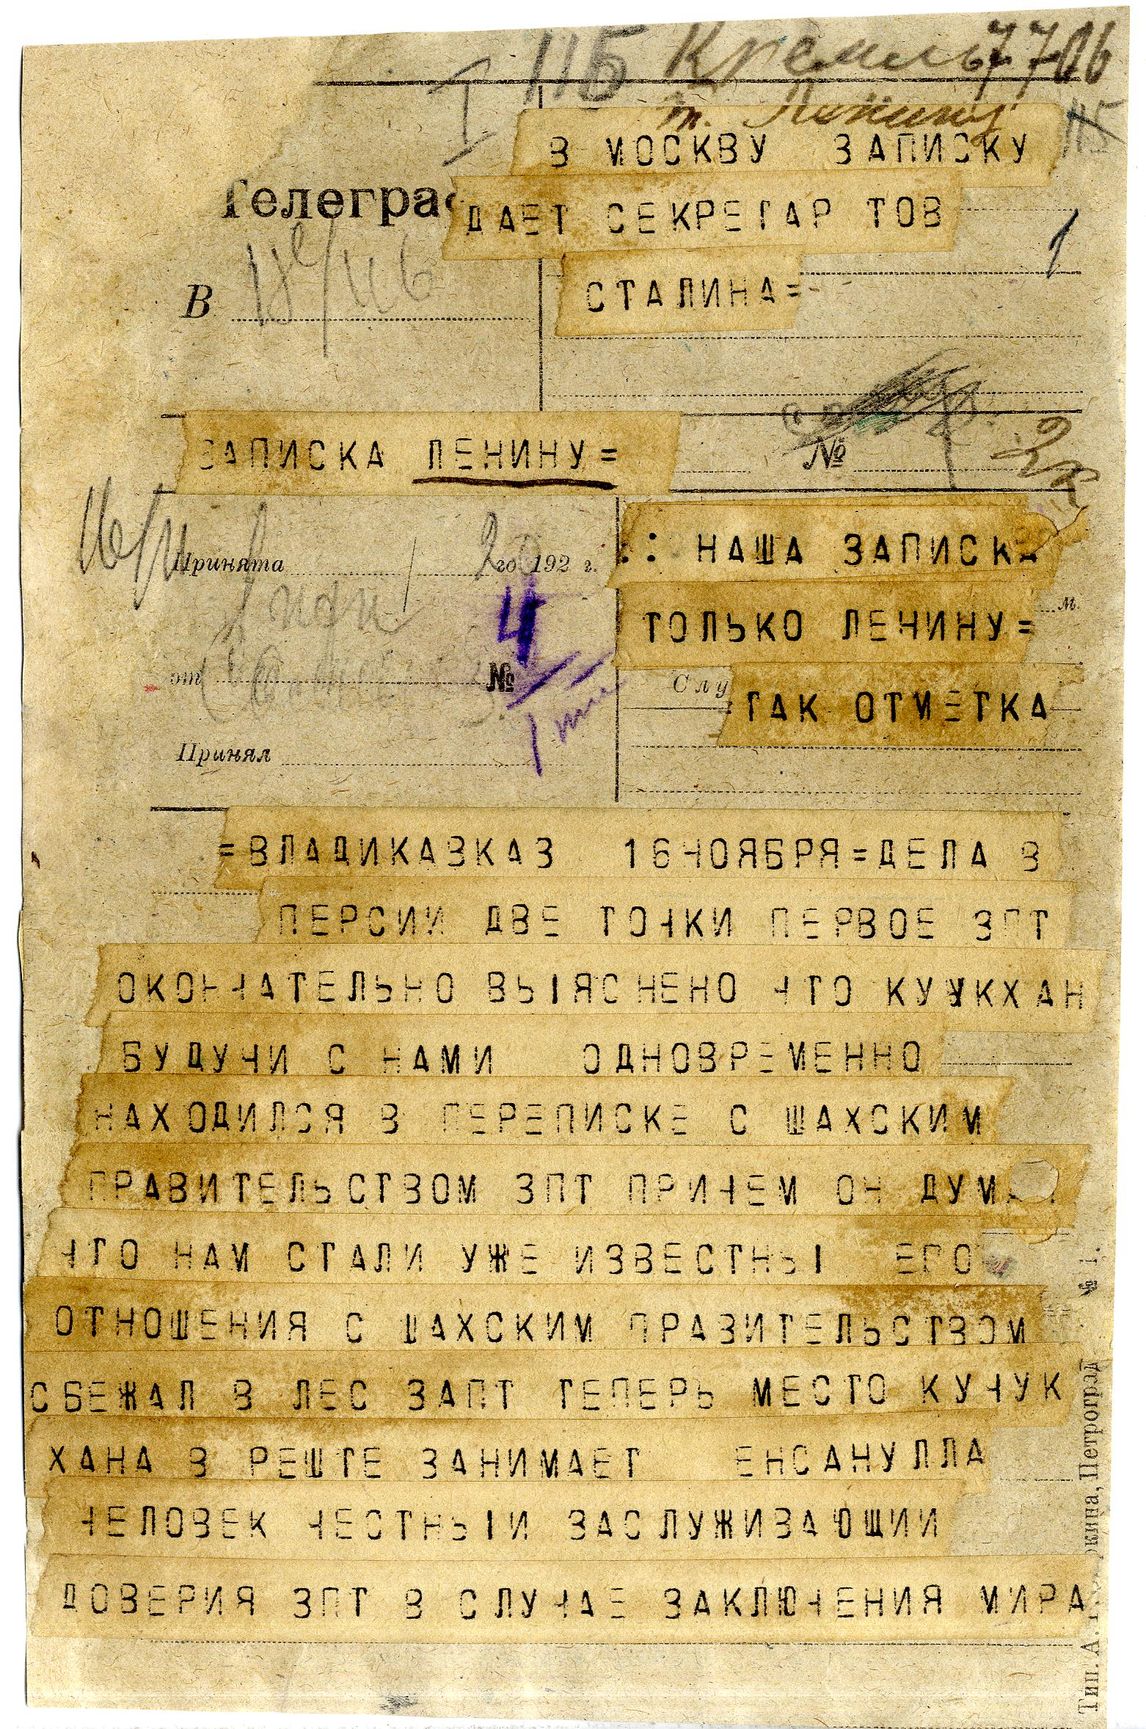 115 Кремль 7706
т. Ленину
115
В МОСКВУ ЗАПИСКУ
Телегра
ДАЕТ СЕКРЕТАР ТОВ
В
СТАЛИНА=
ЗАПИСКА ЛЕНИНУ=
№
16/11
Принята 20го 192 г.
:: НАША ЗАПИСКА
4
м.
ТОЛЬКО ЛЕНИНУ=
от №
Слу
ТАК ОТМЕТКА
Принял
=ВЛАДИКАВКАЗ 16НОЯБРЯ=ДЕЛА В
ПЕРСИИ ДВЕ ТОЧКИ ПЕРВОЕ ЗПТ
ОКОНЧАТЕЛЬНО ВЫЯСНЕНО ЧТО КУЧУКХАН
БУДУЧИ С НАМИ ОДНОВРЕМЕННО
НАХОДИЛСЯ В ПЕРЕПИСКЕ С ШАХСКИМ
ПРАВИТЕЛЬСТВОМ ЗПТ ПРИЧЕМ ОН ДУМ
ЧТО НАМ СТАЛИ УЖЕ ИЗВЕСТНЫ ЕГО
ОТНОШЕНИЯ С ШАХСКИМ ПРАВИТЕЛЬСТВОМ
СБЕЖАЛ В ЛЕС ЗАПТ ТЕПЕРЬ МЕСТО КУЧУК
ХАНА В РЕШТЕ ЗАНИМАЕТ ЕНСАНУЛЛА
ЧЕЛОВЕК ЧЕСТНЫИ ЗАСЛУЖИВАЮЩИИ
ДОВЕРИЯ ЗПТ В СЛУЧАЕ ЗАКЛЮЧЕНИЯ МИРА
Тип. А. ркина, Петроград
№ 1.